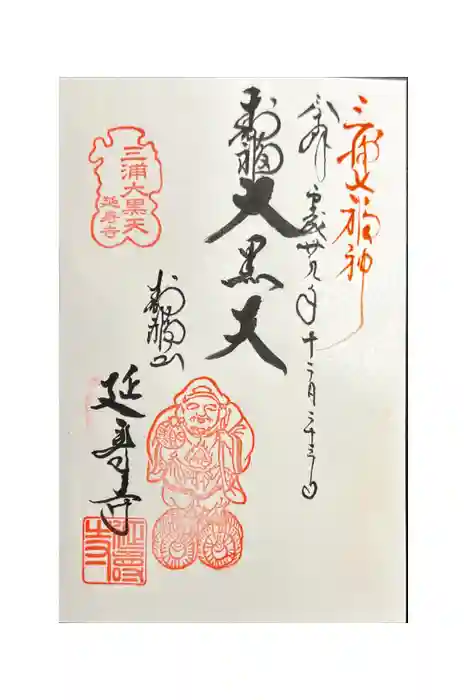 三浦七福神
奉拝 平成廿九年十二月二十三日
寿福大黒天
三浦大黒天
延寿寺
寿福山
延寿寺
延壽寺